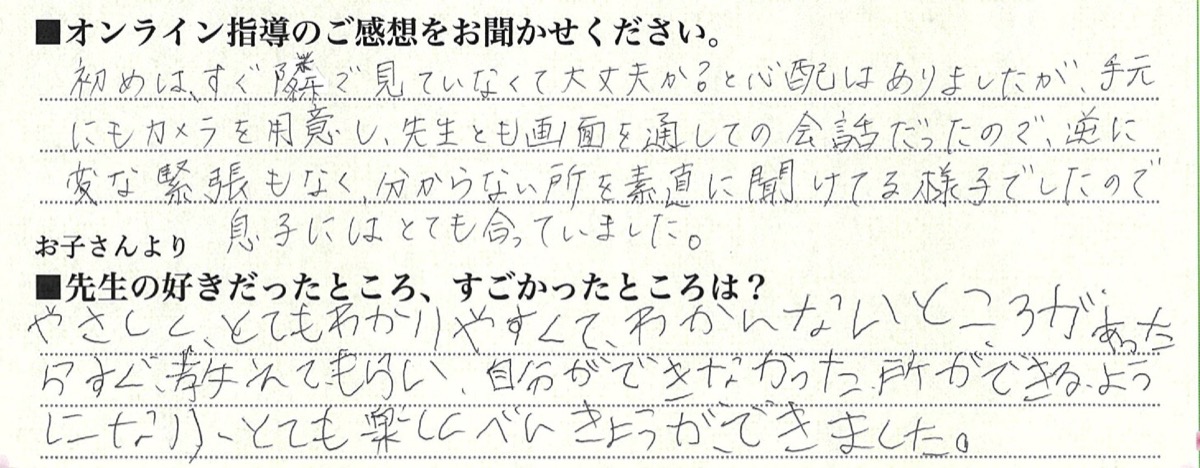 ■オンライン指導のご感想をお聞かせください。
初めは、すぐ隣で見ていなくて大丈夫か?と心配はありましたが、手元
にもカメラを用意し、先生とも画面を通しての会話だったので、逆に
変な緊張もなく、分からない所を素直に聞けてる様子でしたので
息子にはとても合っていました。
お子さんより
■先生の好きだったところ、すごかったところは?
やさしく、とてもわかりやすくて、わかんないところがあった
らすぐ、教えてもらい、自分ができなかった所ができるよう
になり、とても楽しくべんきょうができました。